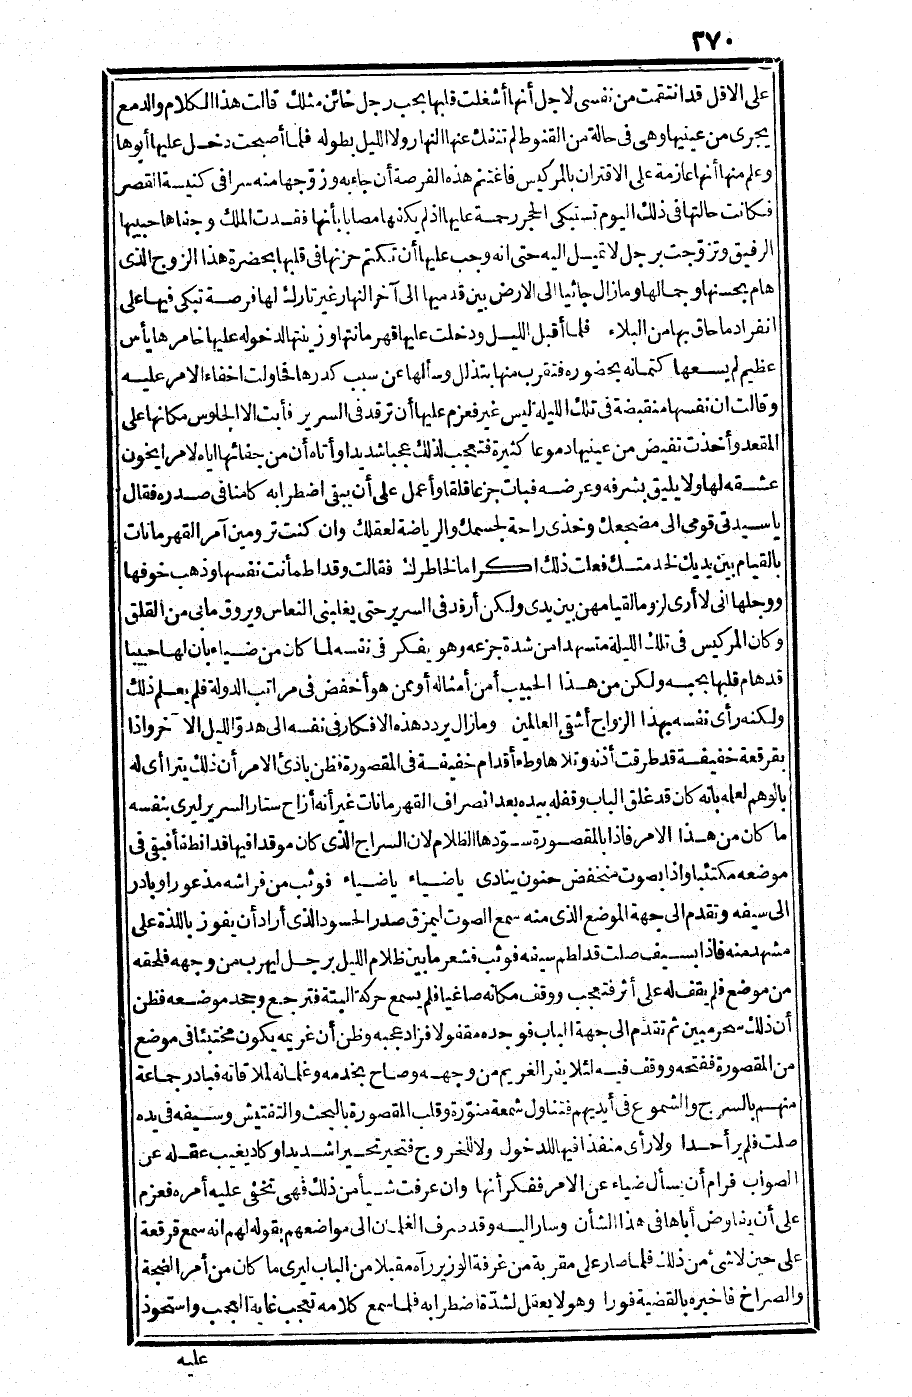 ٢٧٠
على الاقل قد انتقمت من نفسى لاجل أنها أشغلت قلبها بحب رجل خائن مثلك قالت هذا الكلام والدمع
يجرى من عينيها وهى فى حالة من القنوط لم تنفك عنها النهار ولا الليل بطوله فلما أصبحت دخل عليها أبوها
وعلم منها أنها عازمة على الاقتران بالمركيس فاغتنم هذه الفرصة أن جاء به وزوّجها منه سرا فى كنيسة القصر
فكانت حالتها فى ذلك اليوم تستبكى الحجر رحمة عليها اذ لم يكن ها مصابا بأنها فقدت الملك وجفاها حبيبها
الرفيق وتزوّجت برجل لا تميل اليه حتى انه وجب عليها أن تكتم حزنها فى قلبها بحضرة هذا الزوج الذى
هام بحسنها وجمالها وما زال جاثيا الى الارض بين قدميها الى آخر النهار غير تارك لها فرصة تبكى فيها على
انفراد ما حاق بها من البلاء فلما أقبل الليل ودخلت عليها قهرمانتها وزينتها لدخوله عليها خامرها يأس
عظيم لم يسعها كتمانه بحضوره فتقرب منها بتذلل وسألها عن سبب كدرها فحاولت اخفاء الامر عليه
وقالت ان نفسها منقبضة فى تلك الليلة ليس غير فعزم عليها أن ترقد فى السرير فأبت الا الجلوس مكانها على
المقعد وأخذت تفيض من عينيها دموعا كثيرة فتعجب لذلك عجبا شديدا وأتاه أن من جفائها اياه لامرا يخون
عشقه لها ولا يليق بشرفه وعرضه فبات جزعا قلقا وأعمل على أن يبقى اضطرابه كامنا فى صدره فقال
يا سيدتى قومى الى مضجعك وخذى راحة لجسمك والرياضة لعقلك وان كنت ترومين آمر القهرمانات
بالقيام بين يديك لخدمتك فعلت ذلك اكراما لخاطرك فقالت وقد اطمأنت نفسها وذهب خوفها
ووجلها انى لا أرى لزوما لقيامهن بين يدى ولكن أرقد فى السرير حتى يغلبنى النعاس ويروق ما بى من القلق
وكان المركيس فى تلك الليلة متسهدا من شدة جزعه وهو يفكر فى نفسه لما كان من ضياء بان لها حبيبا
قد هام قلبها بحبه ولكن من هذا الحبيب أمن أمثاله أو ممن هو أخفض فى مراتب الدولة فلم يعلم ذلك
ولكنه رأى نفسه بهذا الزواج أشقى العالمين وما زال يردد هذه الافكار فى نفسه الى هدوّ الليل الا آخر واذا
بقرقعة خفيفة قد طرقت أذنه وتلاها وطء أقدام خفيفة فى المقصورة فظن بادئ الامر أن ذلك يتراأى له
بالوهم لعلمه بانه كان قد غلق الباب وقفله بيده بعد انصراف القهرمانات غير أنه أزاح ستار السرير ليرى بنفسه
ما كان من هذا الامر فاذا بالمقصورة سودها الظلام لان السراج الذى كان موقدا فيها قد انطفأ فبقى فى
موضعه مكتئبا واذا بصوت منخفض حنون ينادى ياضياء ياضياء فوثب من فراشه مذعورا وبادر
الى سيفه وتقدم الى جهة الموضع الذى منه سمع الصوت ليمزق صدر الحسود الذى أراد أن يفوز باللذة على
مشهد منه فاذا بسيف صلت قد لطم سيفه فوثب فشعر ما بين ظلام الليل برجل ليهرب من وجهه فلحقه
من موضع فلم يقف له على أثر فتعجب ووقف مكانه صاغيا فلم يسمع حركة البتة فترجع وجحد موضعه فظن
أن ذلك سحر مبين ثم تقدم الى جهة الباب فوجده مقفولا فزاد عجبه وظن أن غريمه يكون مختبئا فى موضع
من المقصورة ففتحه ووقف فيه لئلا يفر الغريم من وجهه وصاح بخدمه وغلمانه لملاقاته فبادر جماعة
منهم بالسرج والشموع فى أيديهم فتناول شمعة منوّرة وقلب المقصورة بالبحث والتفتيش وسيفه فى يده
صلت فلم ير أحدا ولا رأى منفذا فيها للدخول ولا للخروج فتحير تحيرا شديدا وكاد يغيب عقله عن
الصواب فرام أن يسأل ضياء عن الامر ففكر أنها وان عرفت شيأ من ذلك فهى تخفى عليه أمره فعزم
على أن يفاوض أباها فى هذا الشأن وسار اليه وقد صرف الغلمان الى مواضعهم بقوله لهم انه سمع قرقعة
على حين لا شئ من ذلك فلما صار على مقربة من غرفة الوزير رآه مقبلا من الباب ليرى ما كان من أمر الضجة
والصراخ فاخبره بالقضية فورا وهو لا يعقل لشدّة اضطرابه فلما سمع كلامه تعجب غاية العجب واستحوذ
عليه